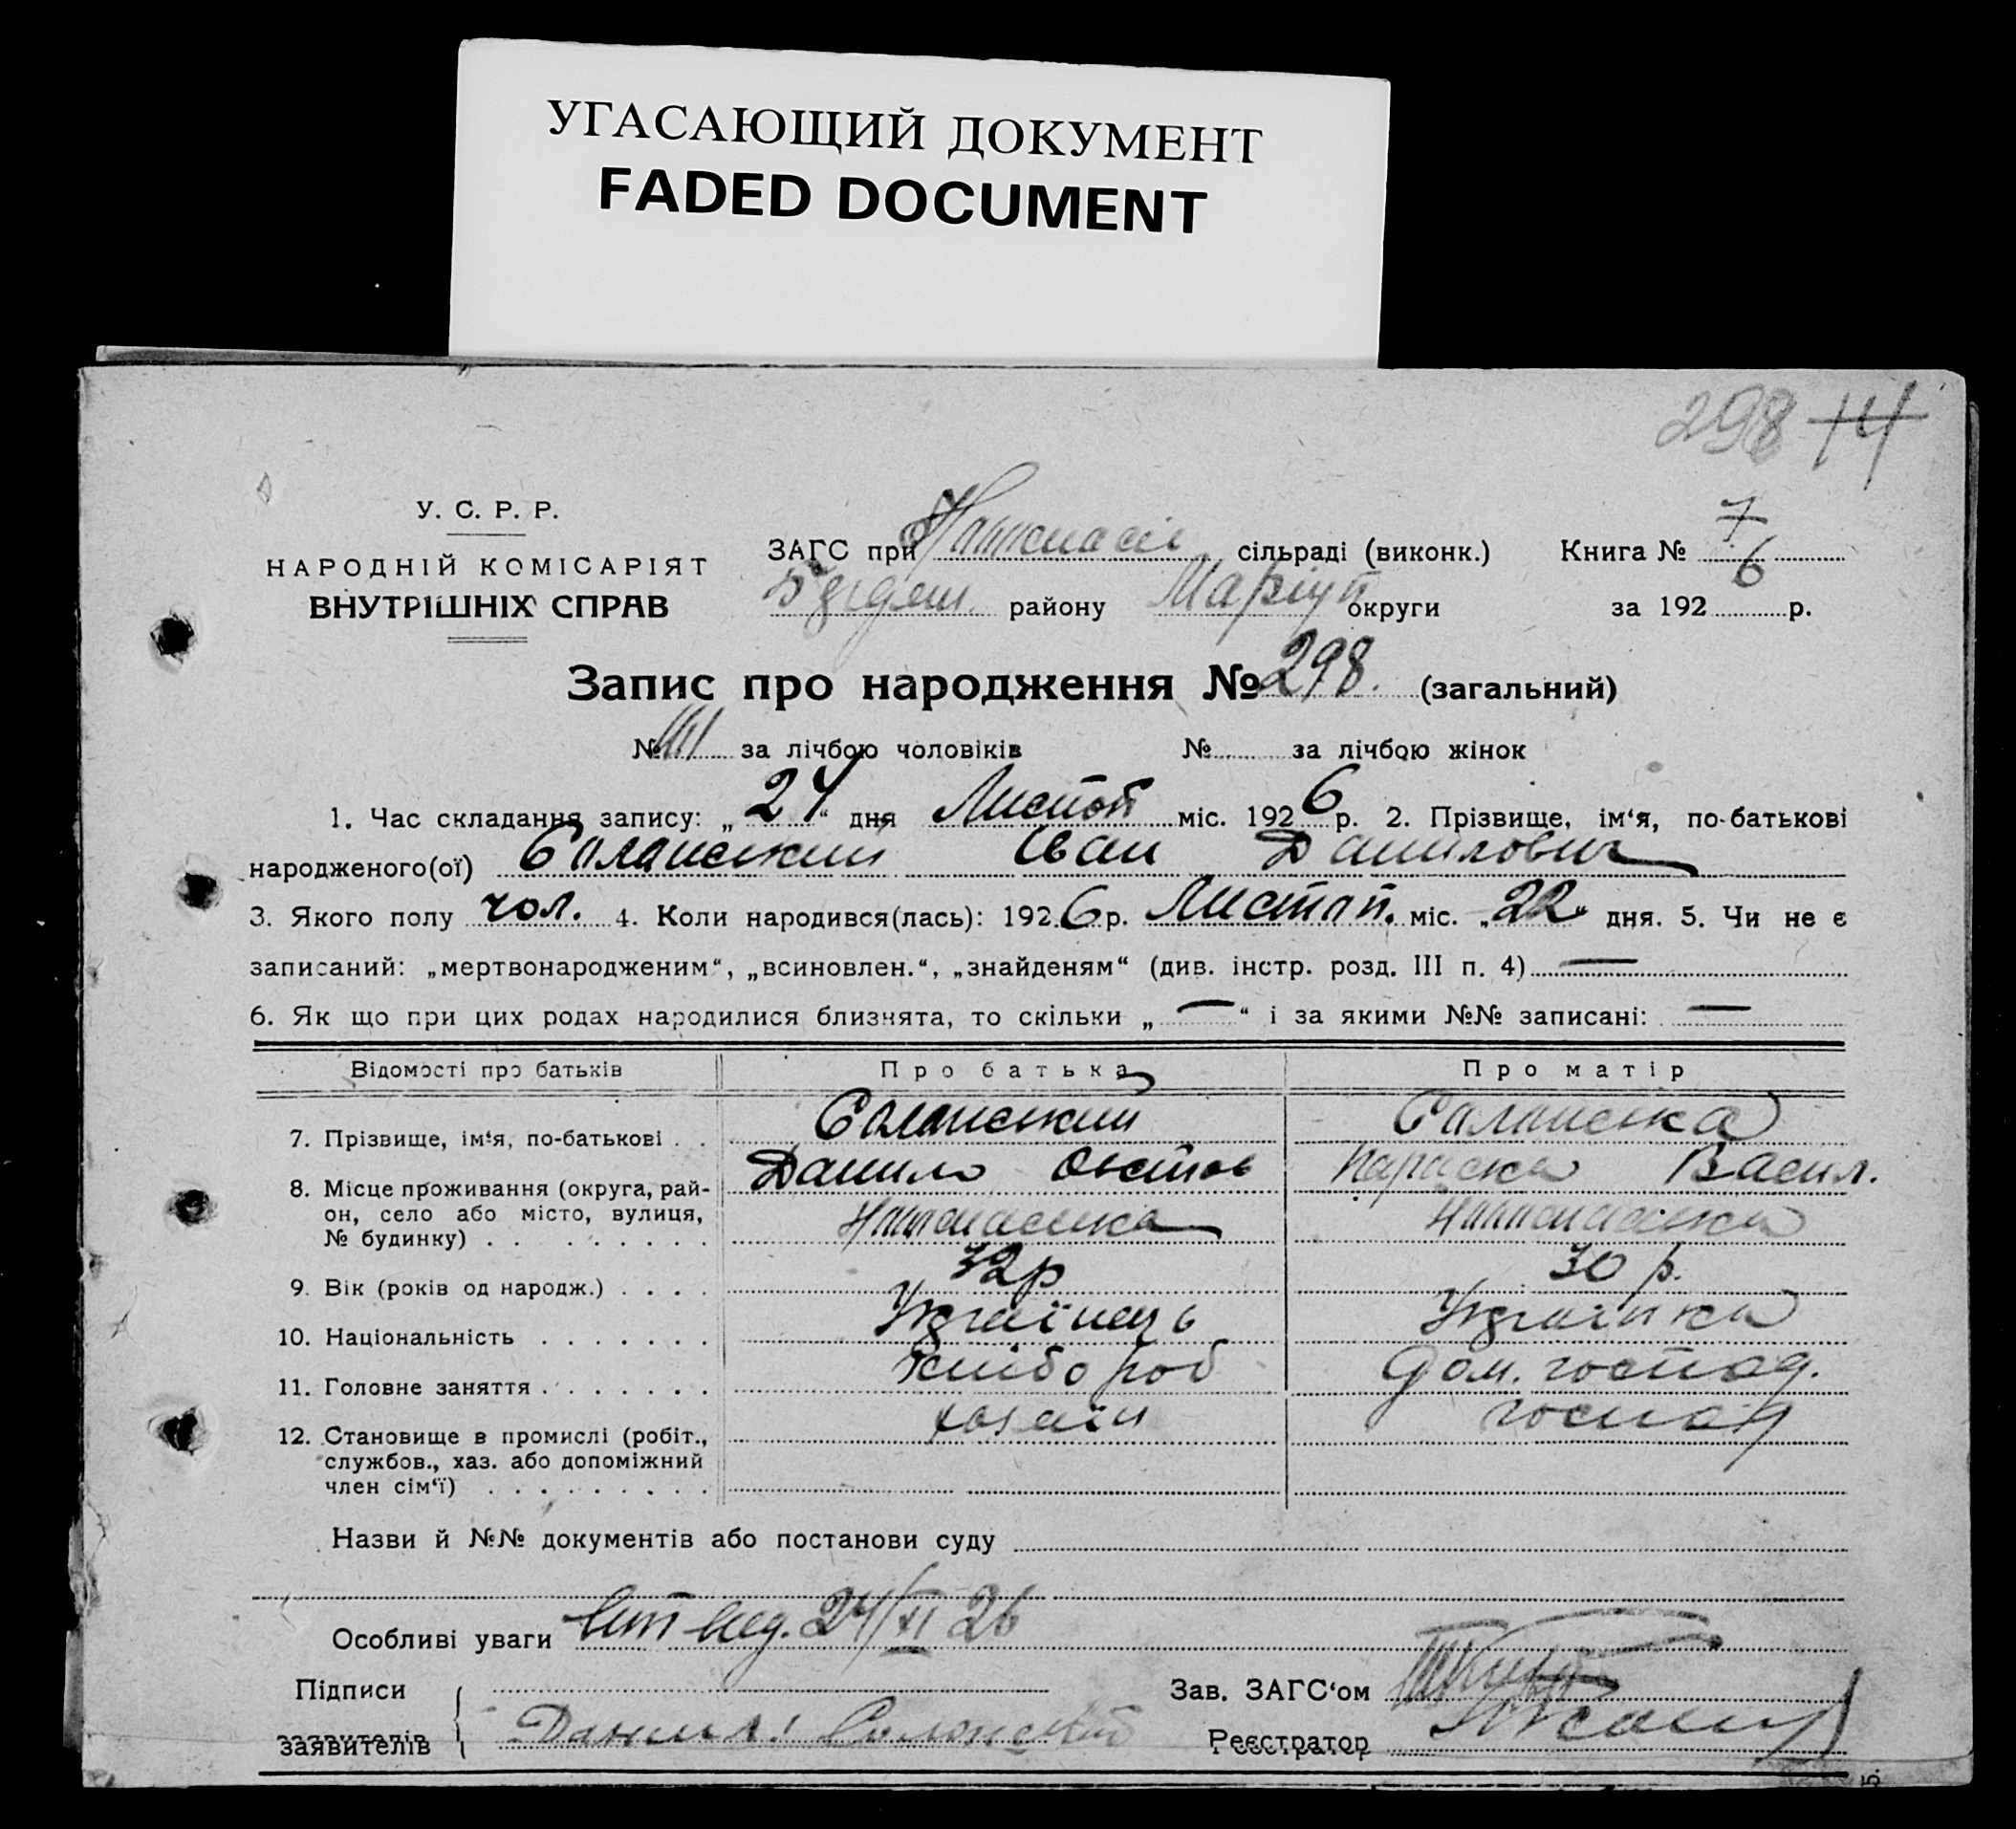 УГАСАЮЩИЙ ДОКУМЕНТ
FADED DOCUMENT
298 14
У. С. Р. Р.
НАРОДНІЙ КОМІСАРІЯТ
ВНУТРІШНІХ СПРАВ
ЗАГС при сільраді (виконк.) Книга № 7
району Маріуп округи за 1926 р.
Запис про народження № 298. (загальний)
№ за лічбою чоловіків № за лічбою жінок
1. Час складання запису: „24“ дня Листоп міс. 1926 р. 2. Прізвище, ім‘я, по-батькові
народженого(ої) Саланский Иван Данилович
3. Якого полу чол. 4. Коли народився(лась): 1926 р. Листоп. міс. „22“ дня. 5. Чи не є
записаний: „мертвонародженим“, „всиновлен.“, „знайденям“ (див. інстр. розд. III п. 4) —
6. Як що при цих родах народилися близнята, то скільки „—“ і за якими №№ записані: —
Відомості про батьків Про батька Про матір
7. Прізвище, ім‘я, по-батькові . . Саланский Саланська
Данило Параска Васил.
8. Місце проживання (округа, рай-
он, село або місто, вулиця,
№ будинку) . . . . . . . . .
9. Вік (років од народж.) . . . . 32р 30 р.
10. Національність . . . . . . . Українець Українка
11. Головне заняття . . . . . . . Хлібороб Дом. господ.
12. Становище в промислі (робіт., хозяїн господ
службов., хаз. або допоміжний
член сім‘ї) . . . . . . . . .
Назви й №№ документів або постанови суду
Особливі уваги вид. 24/XI 26
Підписи Зав. ЗАГС‘ом
заявителів Данил Солонский Реєстратор